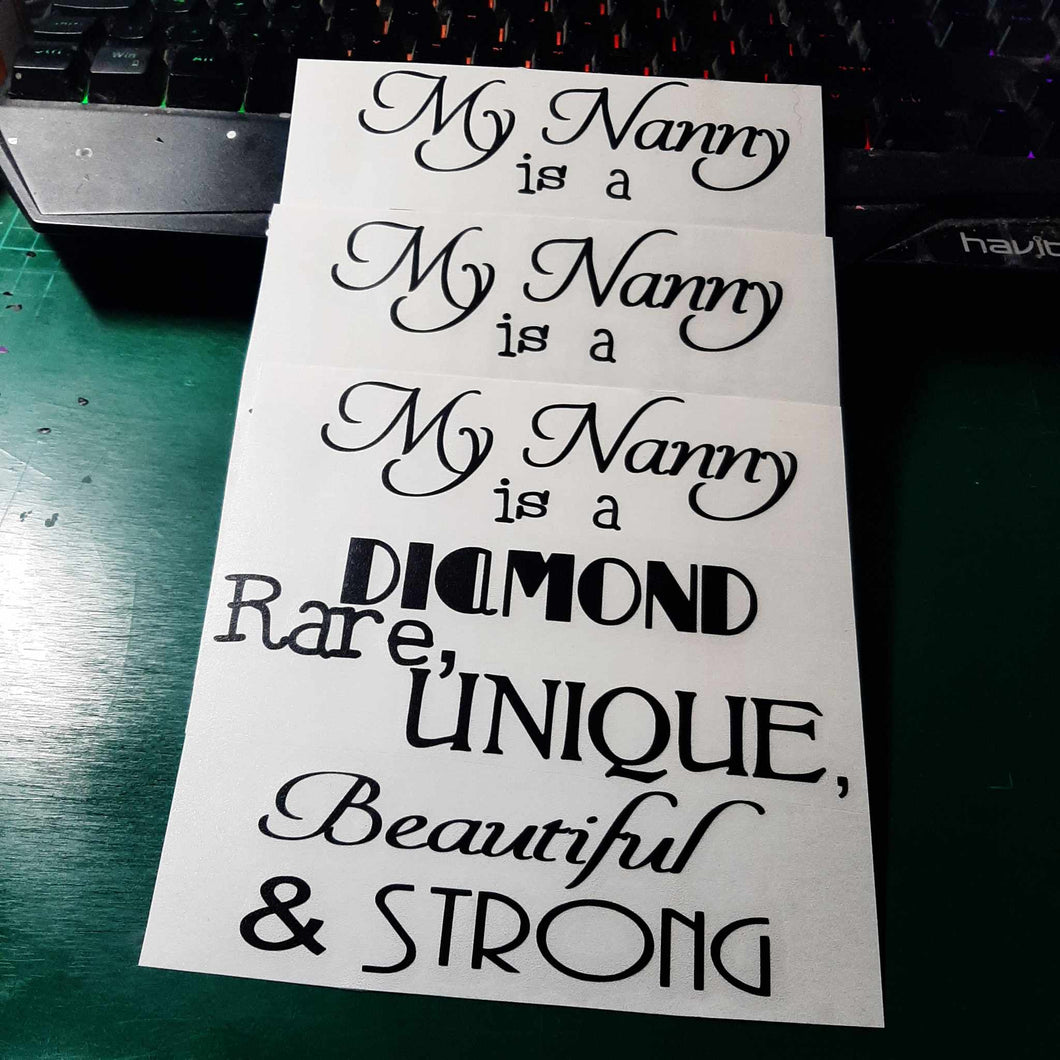 Alt
Win
Alt
havit
My Nanny
is a
My Nanny
is a
My Nanny
is a
DIaMOND
Rare,
UNIQUE,
Beautiful
& STRONG